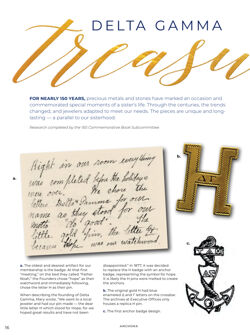 DELTA GAMMA
treasu
FOR NEARLY 150 YEARS, precious metals and stones have marked an occasion and
commemorated special moments of a sister's life. Through the centuries, the trends
changed, and jewelers adapted to meet our needs. The pieces are unique and long-
lasting — a parallel to our sisterhood.
Research completed by the 150 Commemorative Book Subcommittee
a.
Right in our room everything
was completed before the holidays
were over. We chose the
letters Delta Gamma for our
name as they stood for our
b.
H
ΔΓ
c.
a. The oldest and dearest artifact for our
membership is the badge. At that first
"meeting," on the bed they called "Father
the Founders chose "hope" as their
watchword and immediately following,
chose the letter H as their pin.
When describing the founding of Delta
Gamma, Mary wrote, "We went to a local
jeweler and had our pin made — the dear
little letter H which stood for hope, for we
hoped great results and have not been
disappointed." In 1877, it was decided
to replace the H badge with an anchor
badge, representing the symbol for hope.
b. The original gold H had blue
enameled Δ and Γ letters on the crossbar.
The archives at Executive Offices only
houses a replica of pin.
c. The first anchor badge design.
16
ANCHORA